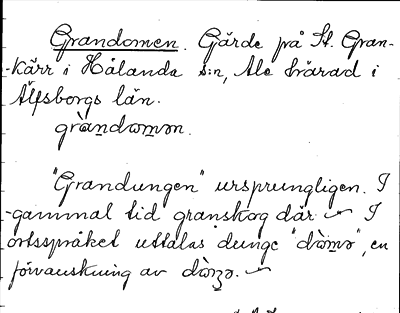 Grandomen. Gärde på St. Gran-
-kärr i Hålanda s:n, Ale härad i
Älfsborgs län.
"Grandungen" ursprungligen. I
gammal tid granskog där. I
ortsspråket uttalas dunge "", en
förvanskning av